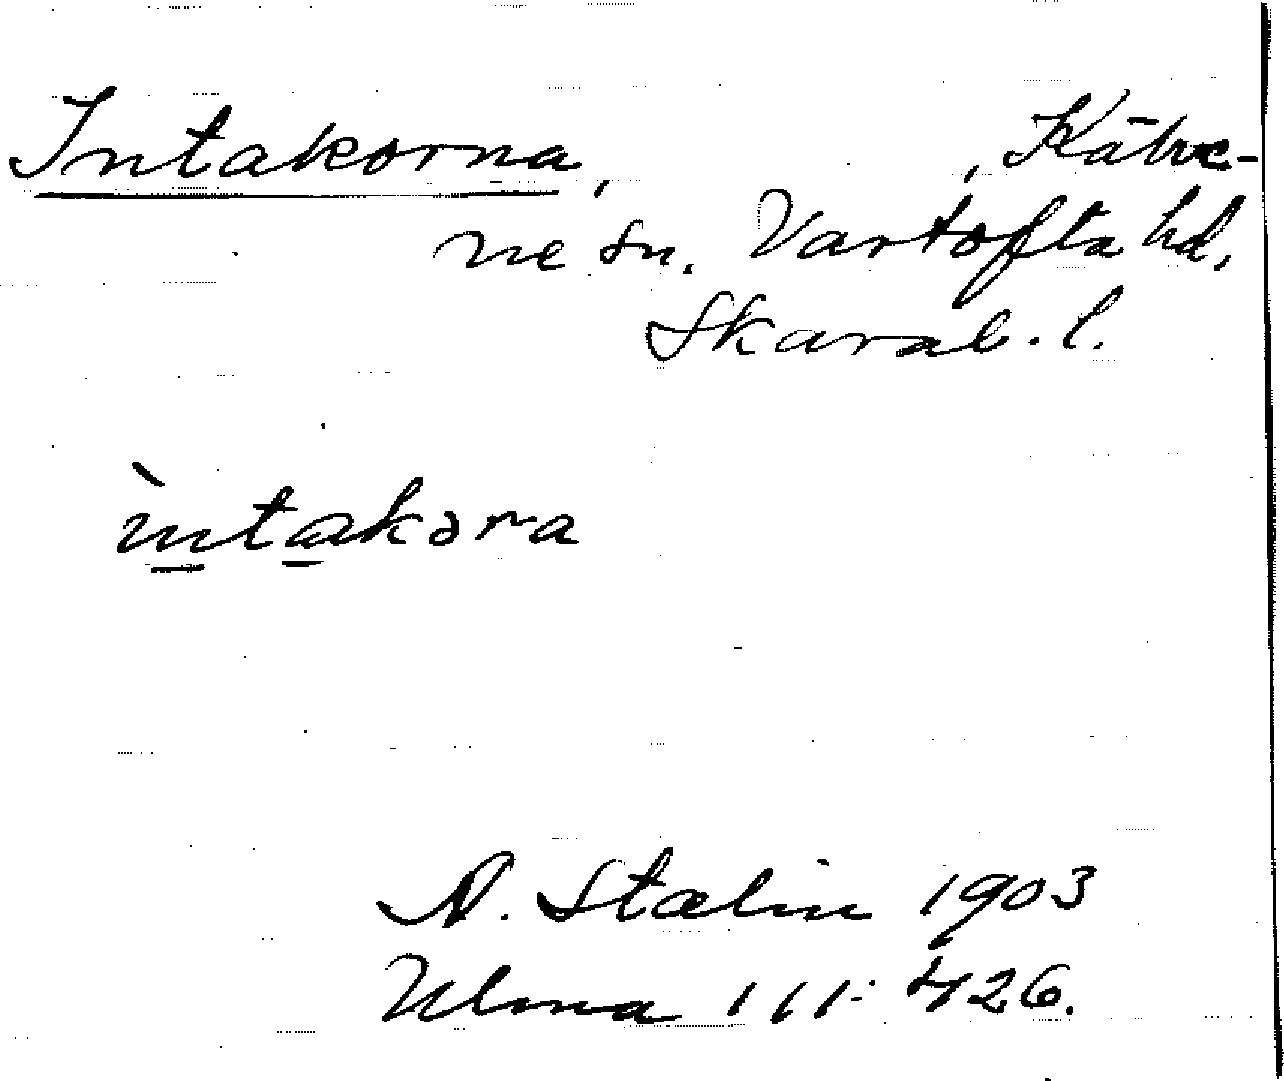 Intakorna, , Kälve-
ne sn. Vartofta hd,
Skarab. l.
ìntakora
A. Stalin 1903
Ulma 111:426.